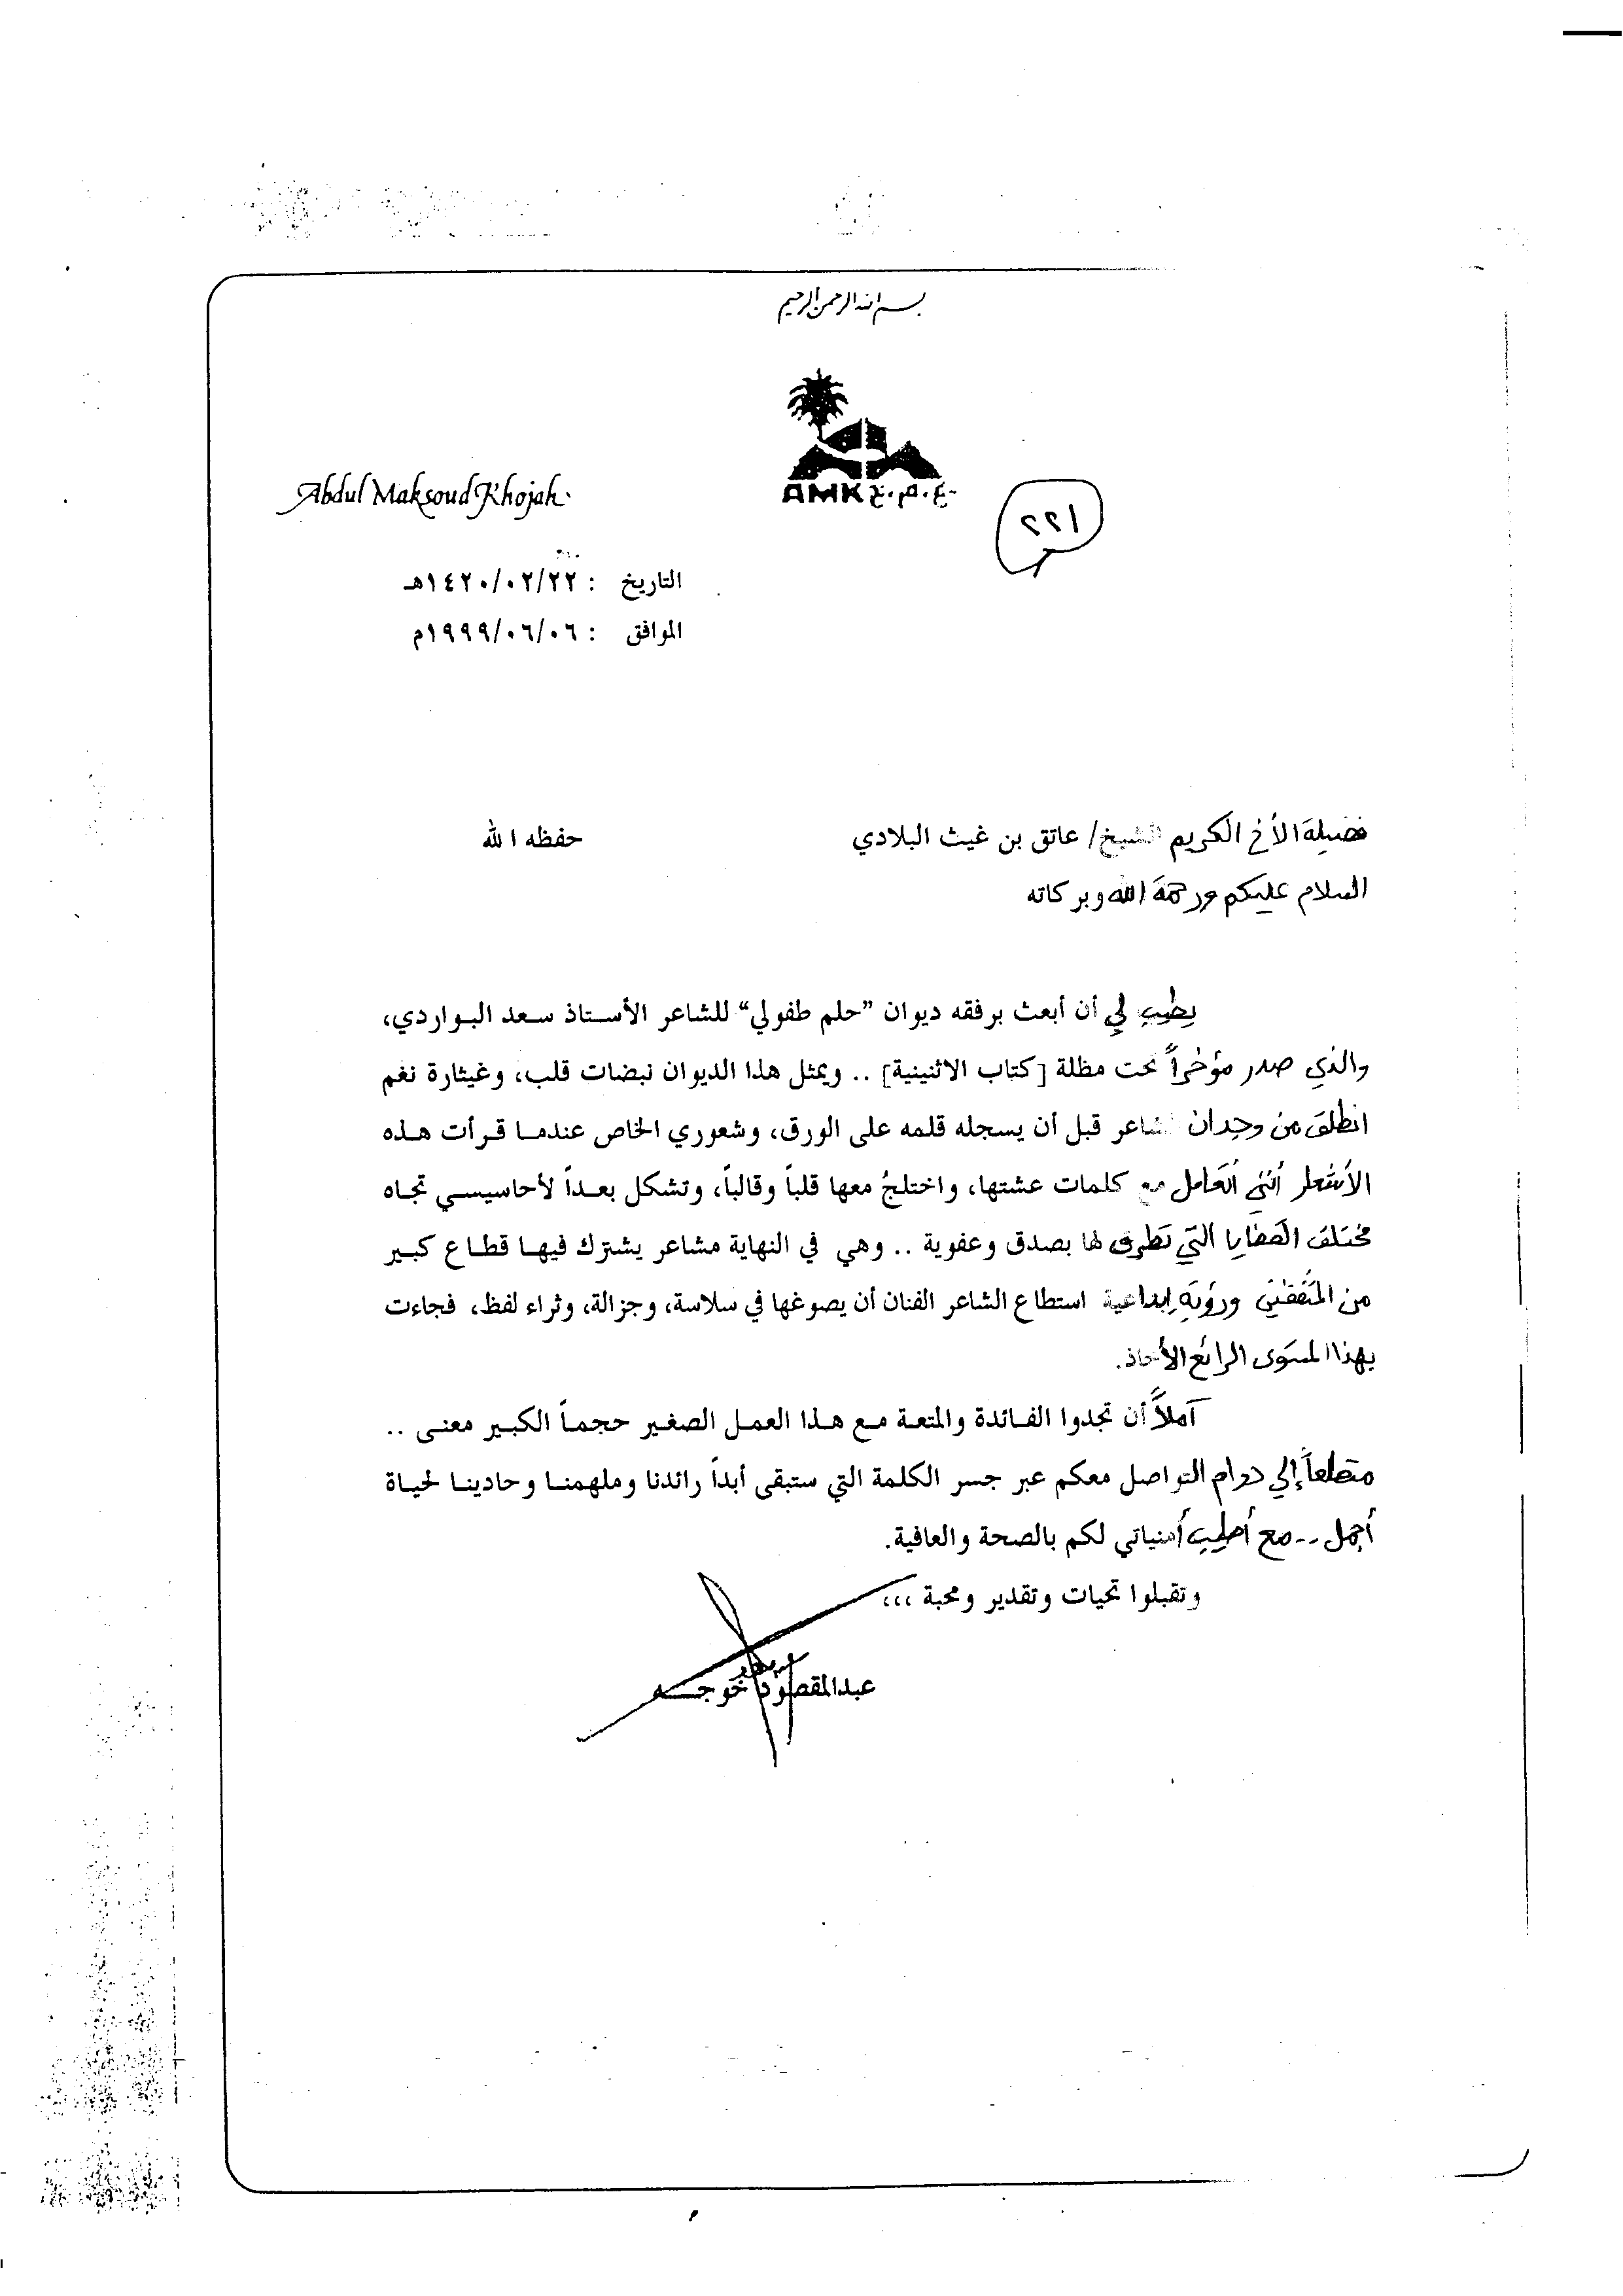 بسم الله الرحمن الرحيم
AMK ع.م.خ
Abdul Maksoud Khojah
٢٢١
التاريخ : ١٤٢٠/٠٢/٢٢هـ
الموافق : ١٩٩٩/٠٦/٠٦م
فضيلة الأخ الكريم الشيخ/ عاتق بن غيث البلادي حفظه الله
السلام عليكم ورحمة الله وبركاته
يطيب لي أن أبعث برفقه ديوان "حلم طفولي" للشاعر الأستاذ سعد البواردي،
والذي صدر مؤخراً تحت مظلة [كتاب الاثنينية] .. ويمثل هذا الديوان نبضات قلب، وغيثارة نغم
انطلق من وجدان الشاعر قبل أن يسجله قلمه على الورق، وشعوري الخاص عندما قرأت هذه
الأشعار أنني أتعامل مع كلمات عشتها، واختلجُ معها قلباً وقالباً، وتشكل بعداً لأحاسيسي تجاه
مختلف القضايا التي تطرق لها بصدق وعفوية .. وهي في النهاية مشاعر يشترك فيها قطاع كبير
من المثقفين ورؤية إبداعية استطاع الشاعر الفنان أن يصوغها في سلاسة، وجزالة، وثراء لفظ، فجاءت
بهذا المستوى الرائع الأخاذ.
آملاً أن تجدوا الفائدة والمتعة مع هذا العمل الصغير حجماً الكبير معنى ..
متطلعاً إلى دوام التواصل معكم عبر جسر الكلمة التي ستبقى أبداً رائدنا وملهمنا وحادينا لحياة
أجمل .. مع أطيب أمنياتي لكم بالصحة والعافية.
وتقبلوا تحيات وتقدير ومحبة ،،،
عبدالمقصود خوجه